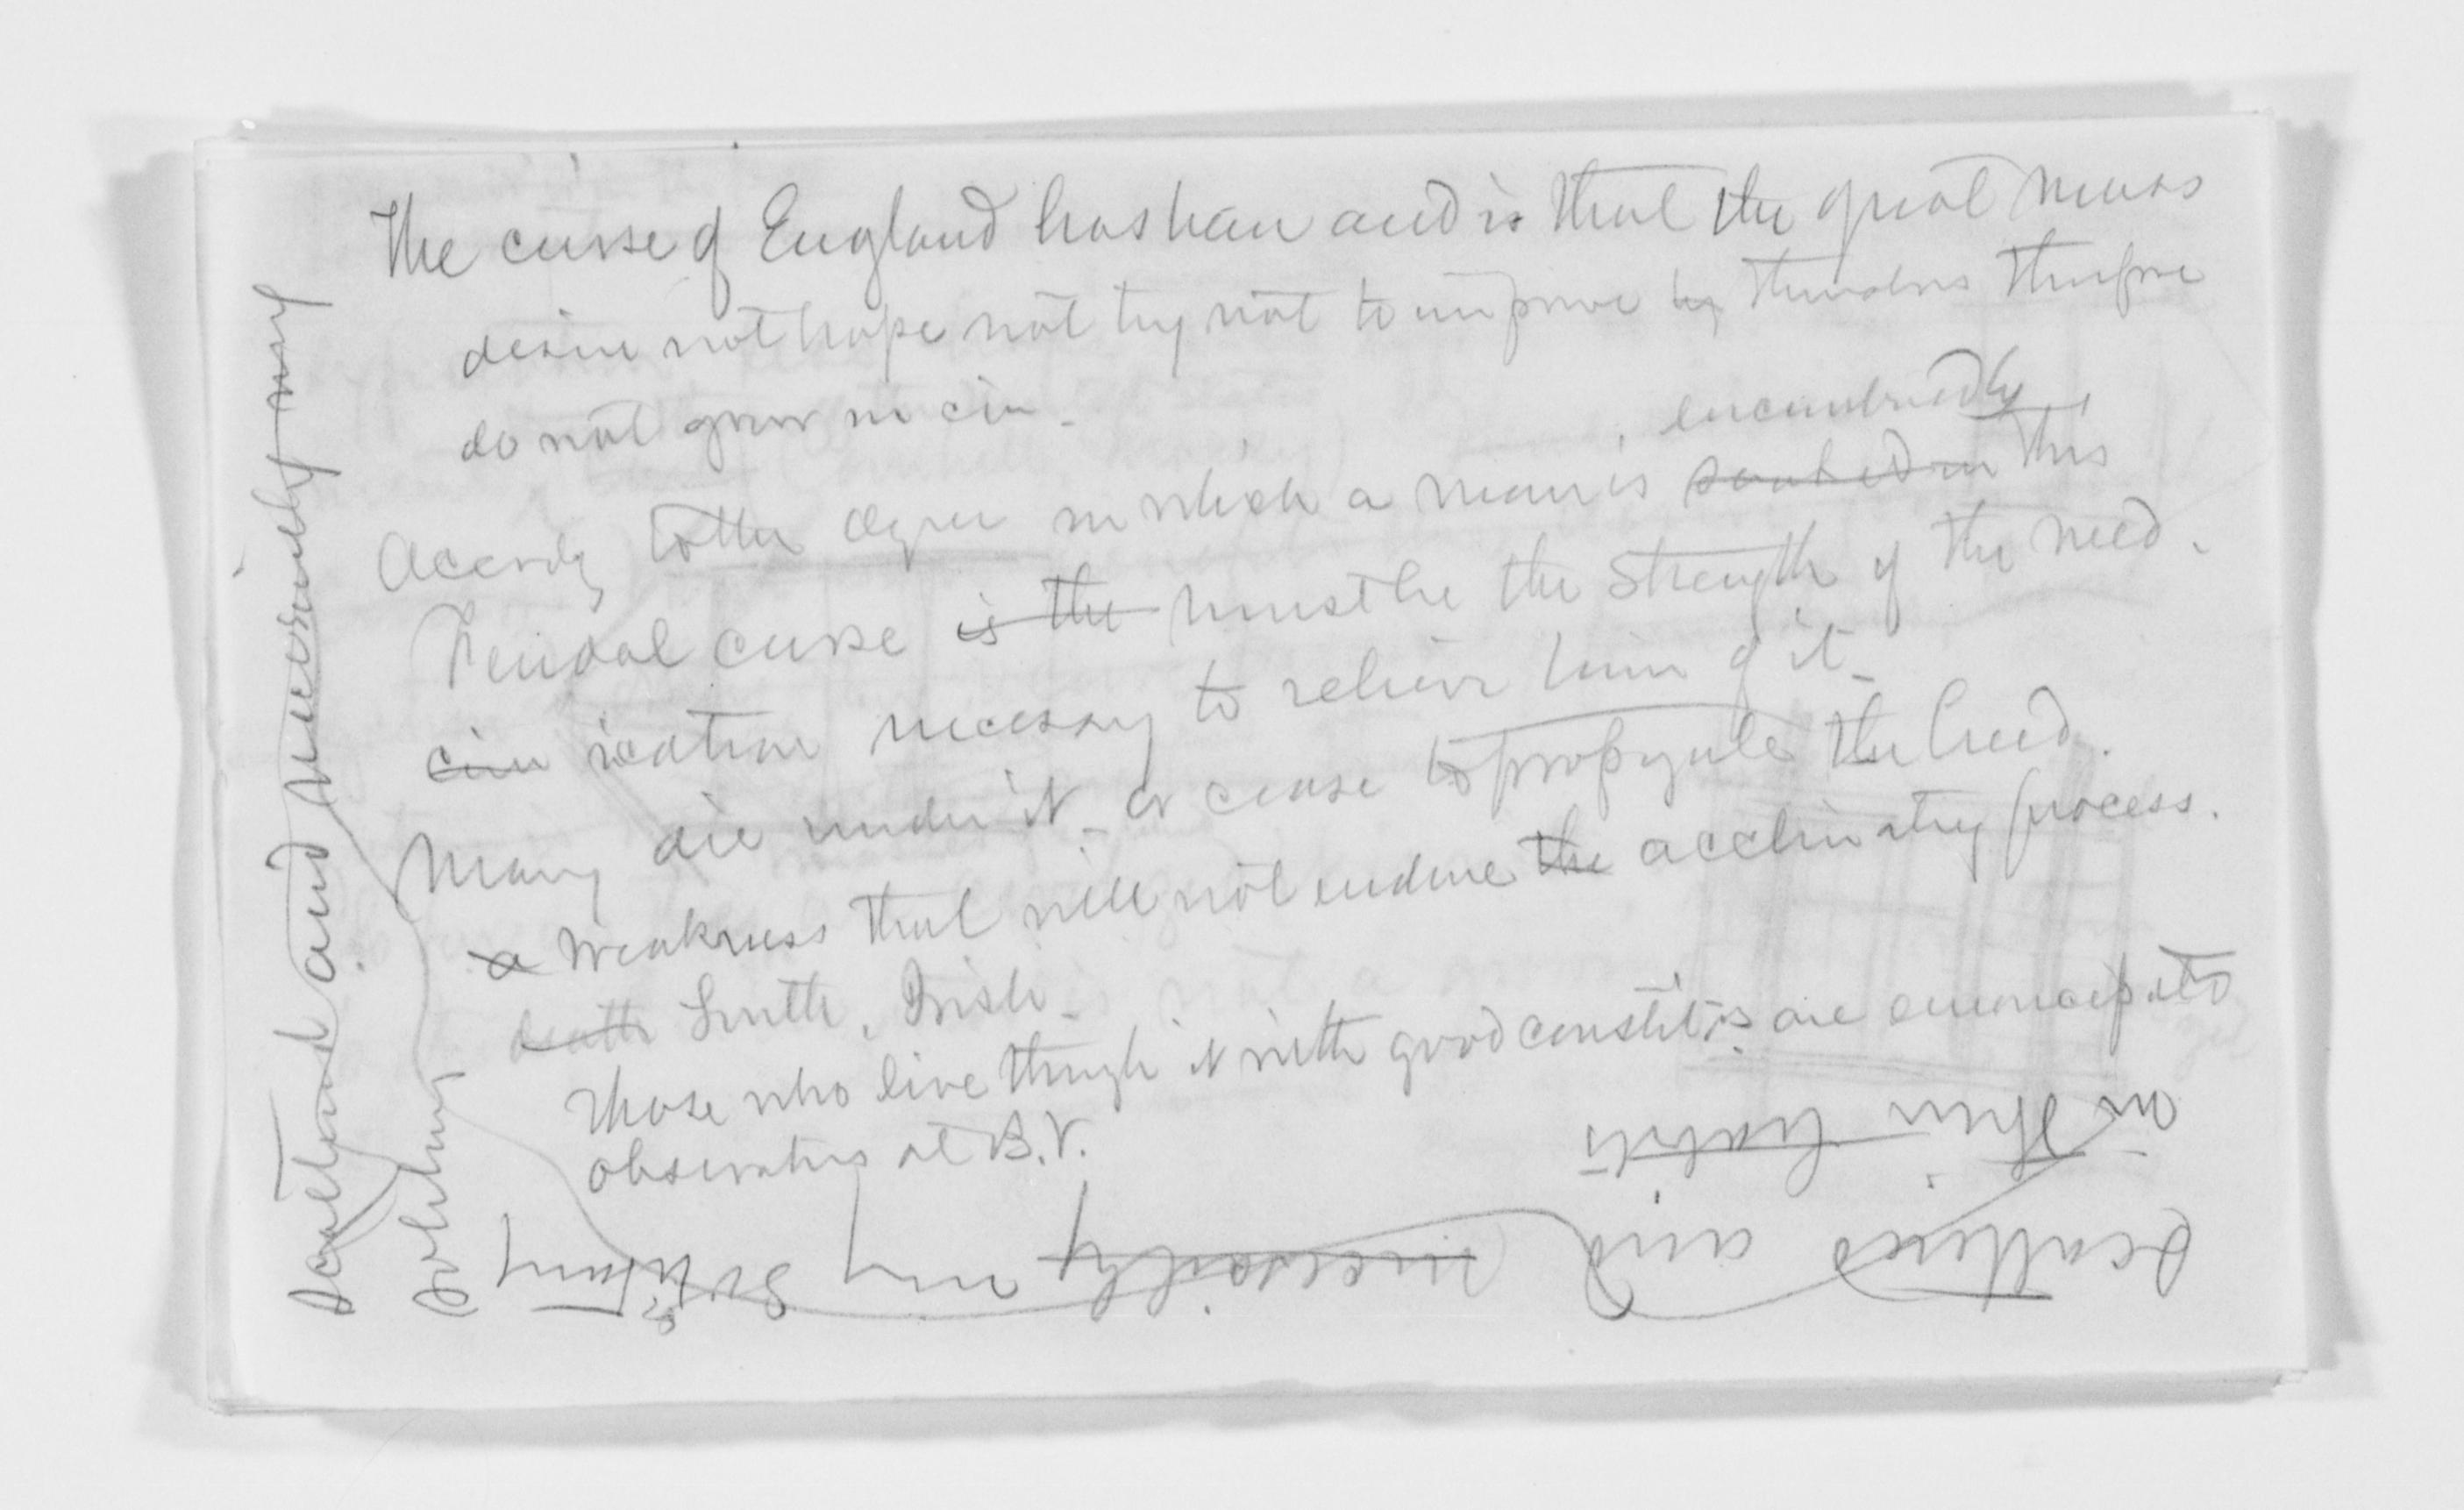 The curse of England has been and is that the great mass
desire not hope not try not to improve by themselves therefore
do not grow in civ -
encumbered by
Accordg to the degree in which a man is soaked in this
Feudal curse is the must be the strength of the need.
necessary to relieve him of it -
Many die under it - or cease to propogate the breed.
a weakness that will not endure the acclimatg process.
death South, Irish -
Those who live through it with good constit'ns are emancipated
observatns at B.V.
in their habits
scattered and necessarily very solitary
Scattered and necessarily very
solitary